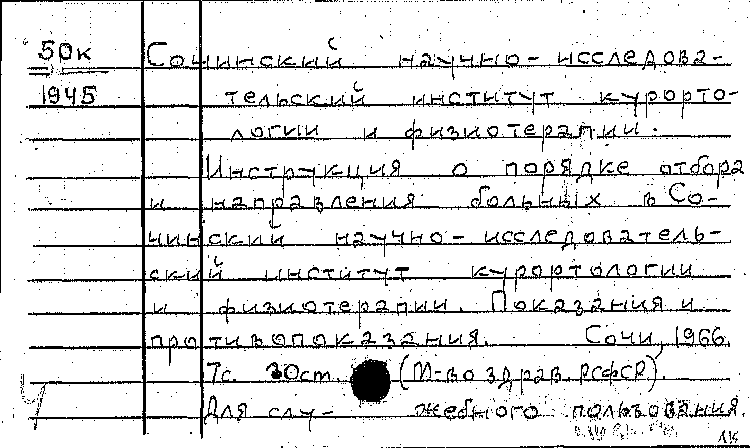 50к Сочинский научно-исследова-
1945 тельский институт курорто-
логии и физиотерапии.
Инструкция о порядке отбора
и направления больных в Со-
чинский научно-исследователь-
ский институт курортологии
и физиотерапии. Показания и
противопоказания. Сочи, 1966.
7с. 30см. (М-во здрав. РСФСР).
Для слу- жебного пользования.